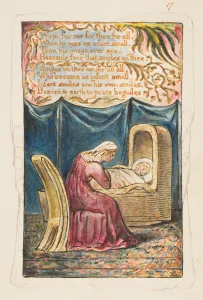 Wept for me for thee for all
When he was an infant small.
Thou his image ever see.
Heavenly face that smiles on thee.
Smiles on thee on me on all,
Who became an infant small,
Infant smiles are his own smiles.
Heaven & earth to peace beguiles.